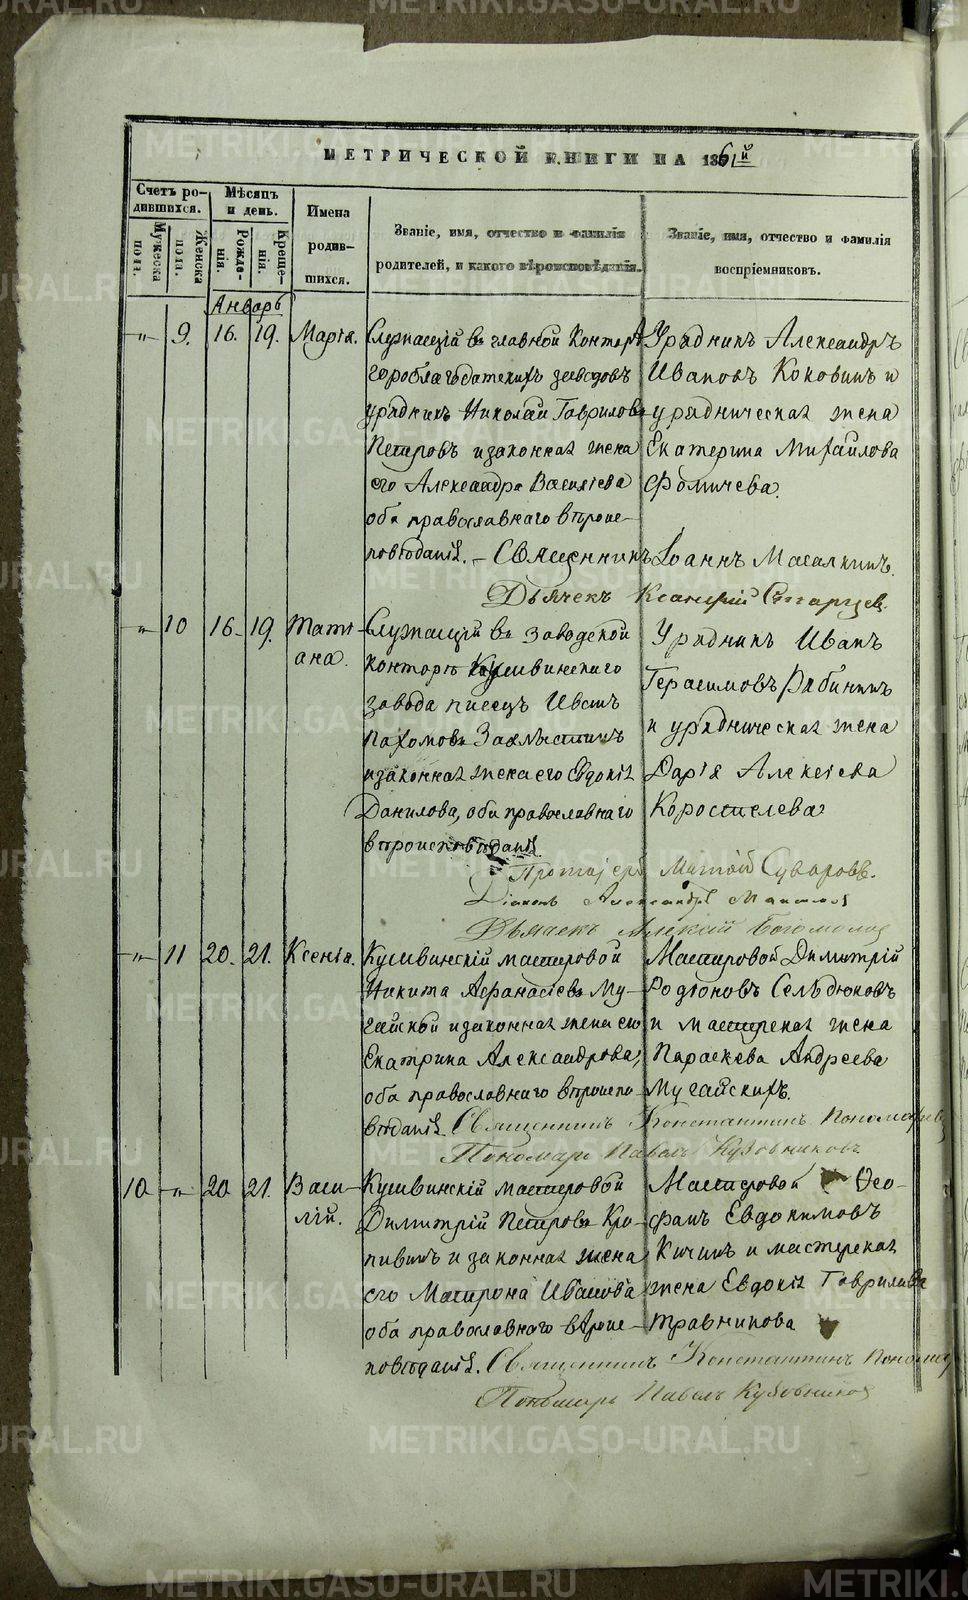 МЕТРИЧЕСКОЙ КНИГИ НА 1861й
Счетъ родившихся.
Мѣсяцъ и день.
Имена родившихся.
Званіе, имя, отчество и фамилія родителей, и какого вѣроисповѣданія.
Званіе, имя, отчество и фамилія воспріемниковъ.
Мужеска пола.
Женска пола.
Рожденія.
Крещенія.
Январь
-„- 9. 16. 19. Марія.
Служащій въ главной Конторѣ
гороблагодатскихъ заводовъ
урядникъ Николай Гавриловъ
Петровъ и законная жена
его Александра Васильева
оба православнаго вѣроис-
повѣданія. – Священникъ Іоаннъ Масалкинъ.
Урядникъ Александръ
Ивановъ Коковинъ и
урядническая жена
Екатерина Михайлова
Фомичева.
Дьячекъ Старцев.
-„- 10 16. 19. Тать-
яна.
Служащій въ Заводской
конторѣ Кушвинскаго
завода писецъ Иванъ
Пахомовъ
и законная жена его Евдокія
Данилова, оба православнаго
вѣроисповѣданія
Урядникъ Иванъ
Герасимовъ Рябининъ
и урядническая жена
Дарія Алексѣева
Коростелева
Протоіерей Суваровъ.
Діаконъ Александръ
Дьячекъ Алексій Богомолов
-„- 11 20. 21. Ксенія.
Кушвинскій мастеровой
Никита Афанасіевъ Му-
гайской и законная жена его
Екатрина Александрова,
оба православнаго вѣроиспо-
вѣданія. Священникъ Константинъ Пономарев
Мастеровой Димитрій
Родіоновъ Сельдюковъ
и мастерская жена
Параскева Андреева
Мугайскихъ.
Пономарь Павелъ Кузовниковъ
10 -„- 20 21. Васи-
лій.
Кушвинскій мастеровой
Димитрій Петровъ Кро-
пивинъ и законная жена
его Матрона Иванова
оба православнаго вѣроис-
повѣданія. Священникъ Константинъ Пономар
Мастеровой Ѳео-
фанъ Евдокимовъ
Кичинъ и мастерская
жена Евдокія Гаврилова
Травникова
Пономарь Павелъ Кузовников
METRIKI.GASO-URAL.RU